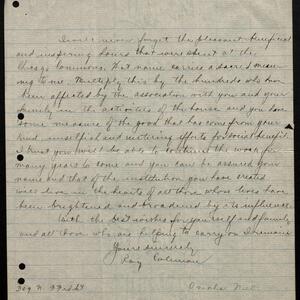 I will never forget the pleasant beneficial
and inspiring hours that were spent at the
Chicago Commons. That name carries a sacred mean-
ing to me. Multiply this by the hundreds who have
been affected by the association with you and your
family in the activities of the house and you have
some measure of the good that has come from your
kind unselfish and untiring efforts for social benefit.
I trust you will be able to continue the work for
many years to come and you can be assured your
name and that of the institution you have created
will live in the hearts of all those whose lives have
been brightened and broadened by its influence
With the best wishes for yourself and family
and all those who are helping to carry on I remain
Yours sincerely
Ray
Omaha Neb.